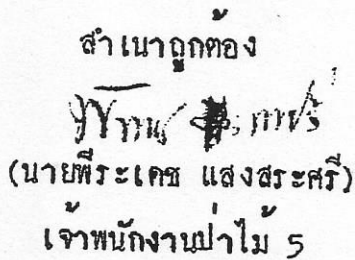 สำเนาถูกต้อง
(นายพีระเดช แสงสระศรี)
เจ้าพนักงานป่าไม้ 5